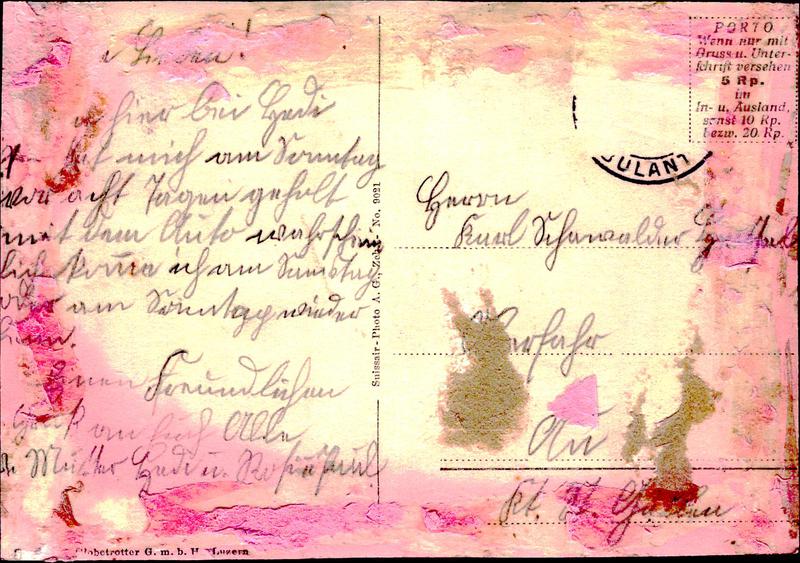 Lieben!
hier bei Hedi
hat mich am Sonntag
vor acht Tagen geholt
mit dem Auto wahrschein
lich komme ich am Samstag
oder am Sonntag wieder
heim.
einen Freundlichen
Gruß an Euch Alle
Mutter Hedi u.
Suissair-Photo A. G., No. 9021
Globetrotter G. m. b. H. Luzern
PORTO
Wenn nur mit
Gruss u. Unter-
schrift versehen
5 Rp.
im
In- u. Ausland,
sonst 10 Rp.
bezw. 20 Rp.
ULANT
Herrn
Karl Schawalder
Au
Kt. St. Gallen